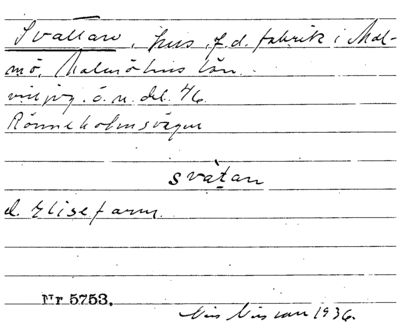 Svattan, hus, f. d. fabrik i Mal-
mö, Malmöhus län.
ö. n. del. 46
Rönneholmsvägen
svàṭan
d. Elisefarm.
Nr 5753.
Nils 1936.